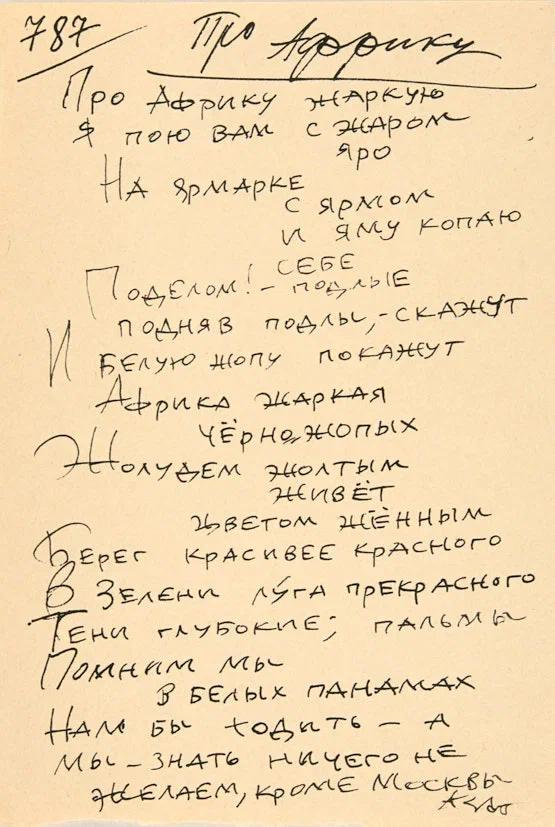 787 Про Африку
Про Африку жаркую
Я пою вам с жаром
яро
На ярмарке
с ярмом
и яму копаю
себе
Поделом! – подлые
подняв подлы, – скажут
И белую жопу покажут
Африка жаркая
чёрно, жопых
Жолудем жолтым
живёт
цветом жённым
Берег красивее красного
В зелени луга прекрасного
Тени глубокие; пальмы
Помним мы
в белых панамах
Нам бы ходить – а
мы – знать ничего не
желаем, кроме Москвы